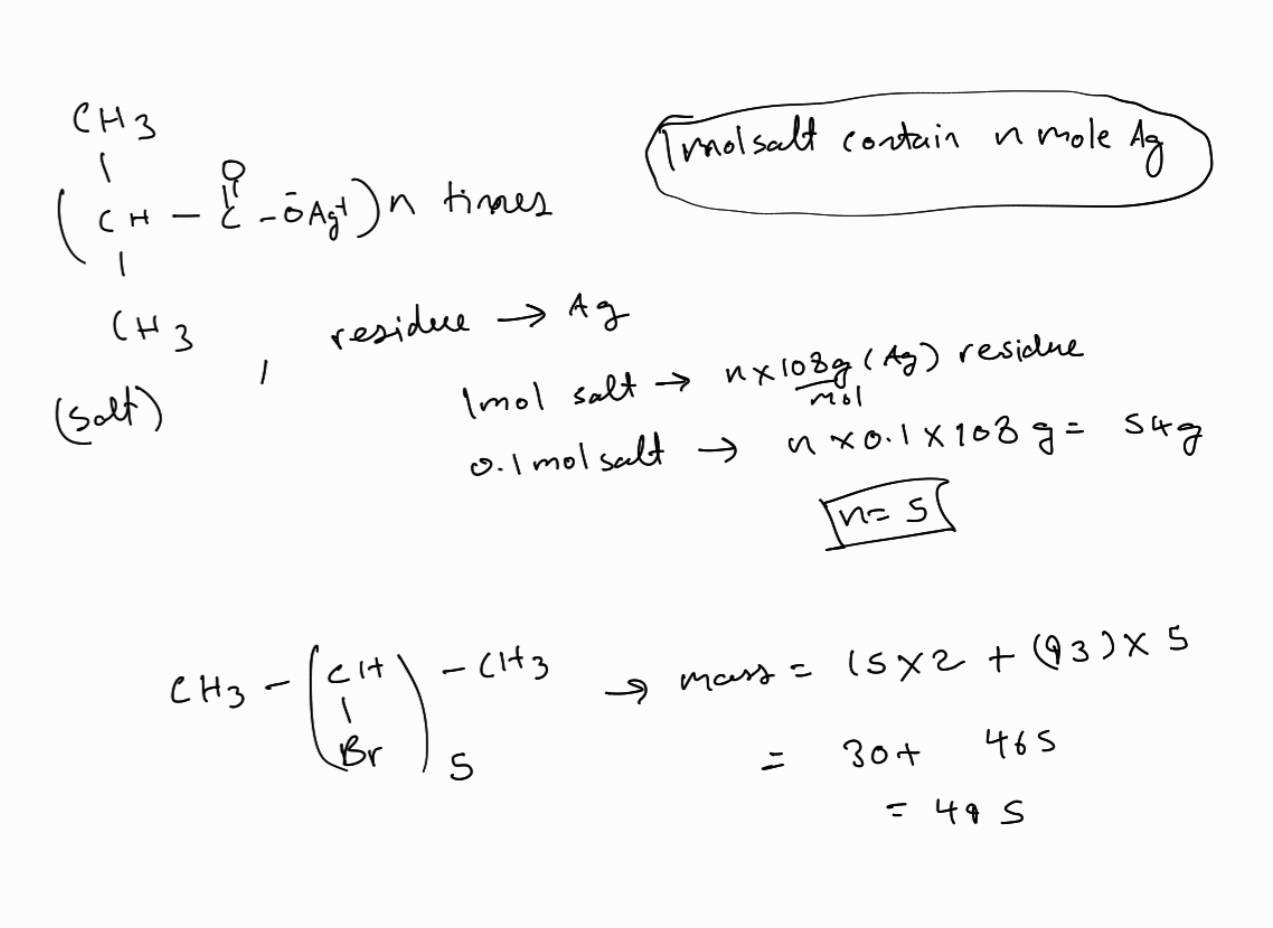 CH3
|
(CH - C(=O) - ŌAg⁺) n times
|
CH3
(salt)
1 mol salt contain n mole Ag
, residue → Ag
1 mol salt → n × 108 g/mol (Ag) residue
0.1 mol salt → n × 0.1 × 108 g = 54 g
n = 5
CH3 - (CH) - CH3 → mass = 15 × 2 + (93) × 5
|
Br 5
= 30 + 465
= 495